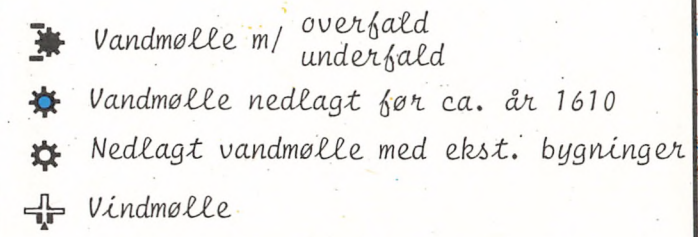 Vandmølle m/ overfald
underfald
Vandmølle nedlagt før ca. år 1610
Nedlagt vandmølle med ekst. bygninger
Vindmølle